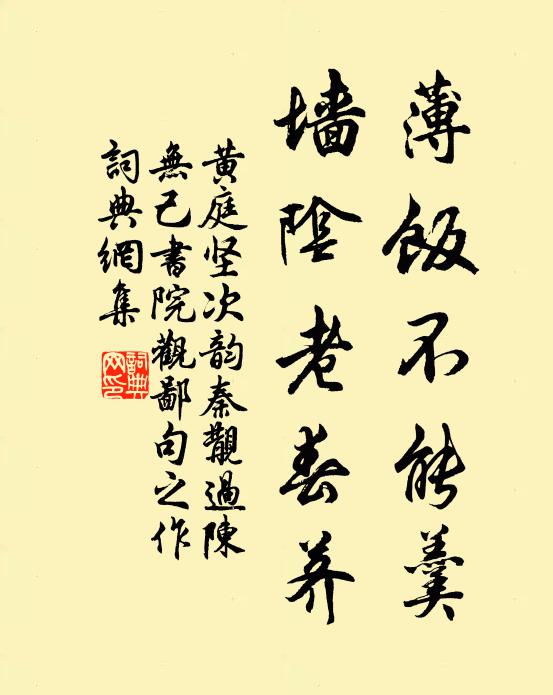 薄飯不能羹
墙陰老春荠
黄庭坚次韵秦覯過陳
無己書院觀鄙句之作
詞典網集
詞典
网印